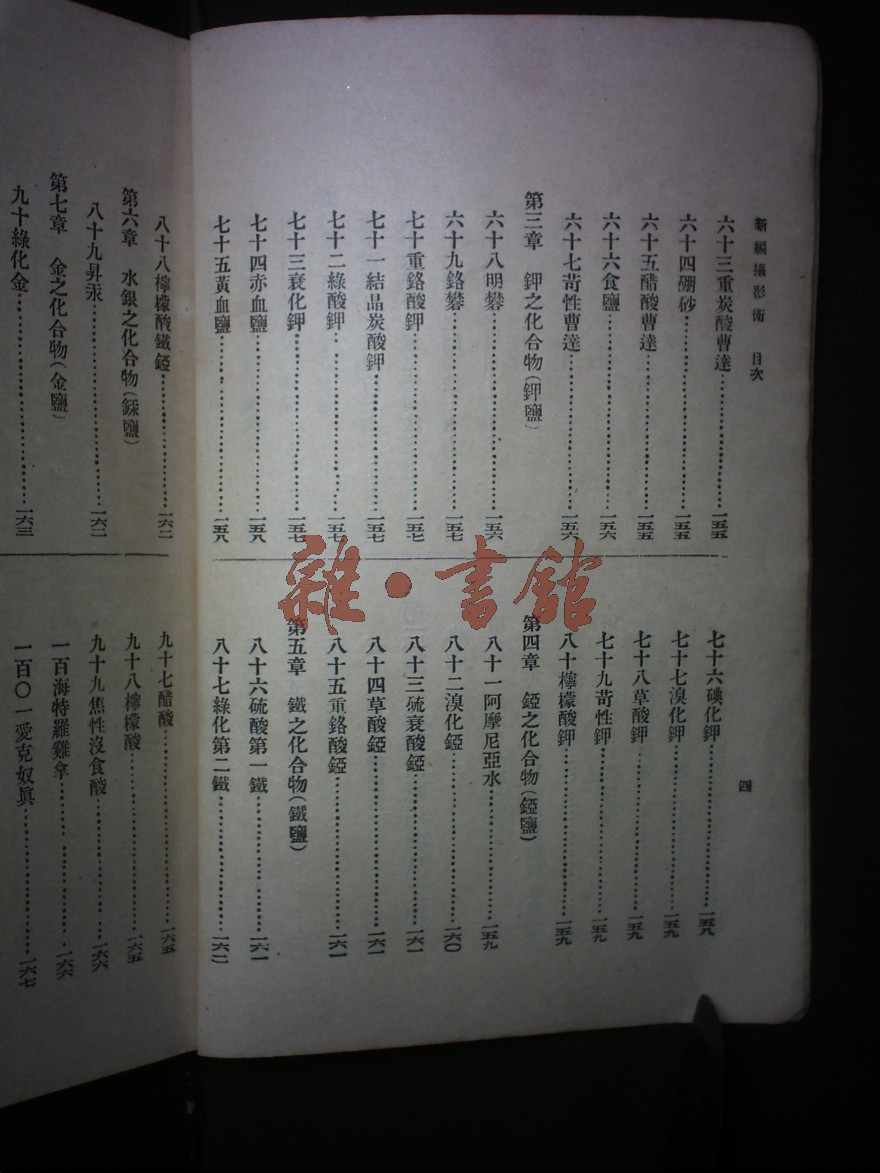 新編攝影術 目次
六十三重炭酸曹達……………一五五
六十四硼砂……………一五五
六十五醋酸曹達……………一五五
六十六食鹽……………一五六
六十七苛性曹達……………一五六
第三章 鉀之化合物(鉀鹽)
六十八明礬……………一五六
六十九鉻礬……………一五七
七十重鉻酸鉀……………一五七
七十一結晶炭酸鉀……………一五七
七十二綠酸鉀……………一五七
七十三衰化鉀……………一五七
七十四赤血鹽……………一五八
七十五黃血鹽……………一五八
七十六碘化鉀……………一五八
七十七溴化鉀……………一五九
七十八草酸鉀……………一五九
七十九苛性鉀……………一五九
八十檸檬酸鉀……………一五九
第四章 錏之化合物(錏鹽)
八十一阿摩尼亞水……………一五九
八十二溴化錏……………一六〇
八十三硫衰酸錏……………一六一
八十四草酸錏……………一六一
八十五重鉻酸錏……………一六一
第五章 鐵之化合物(鐵鹽)
八十六硫酸第一鐵……………一六一
八十七綠化第二鐵……………一六二
四
八十八檸檬酸鐵錏……………一六二
第六章 水銀之化合物(銾鹽)
八十九昇汞……………一六二
第七章 金之化合物(金鹽)
九十綠化金……………一六三
九十七醋酸……………一六五
九十八檸檬酸……………一六五
九十九焦性沒食酸……………一六六
一百海特羅雞拿……………一六六
一百〇一愛克奴眞……………一六七
雜·書館